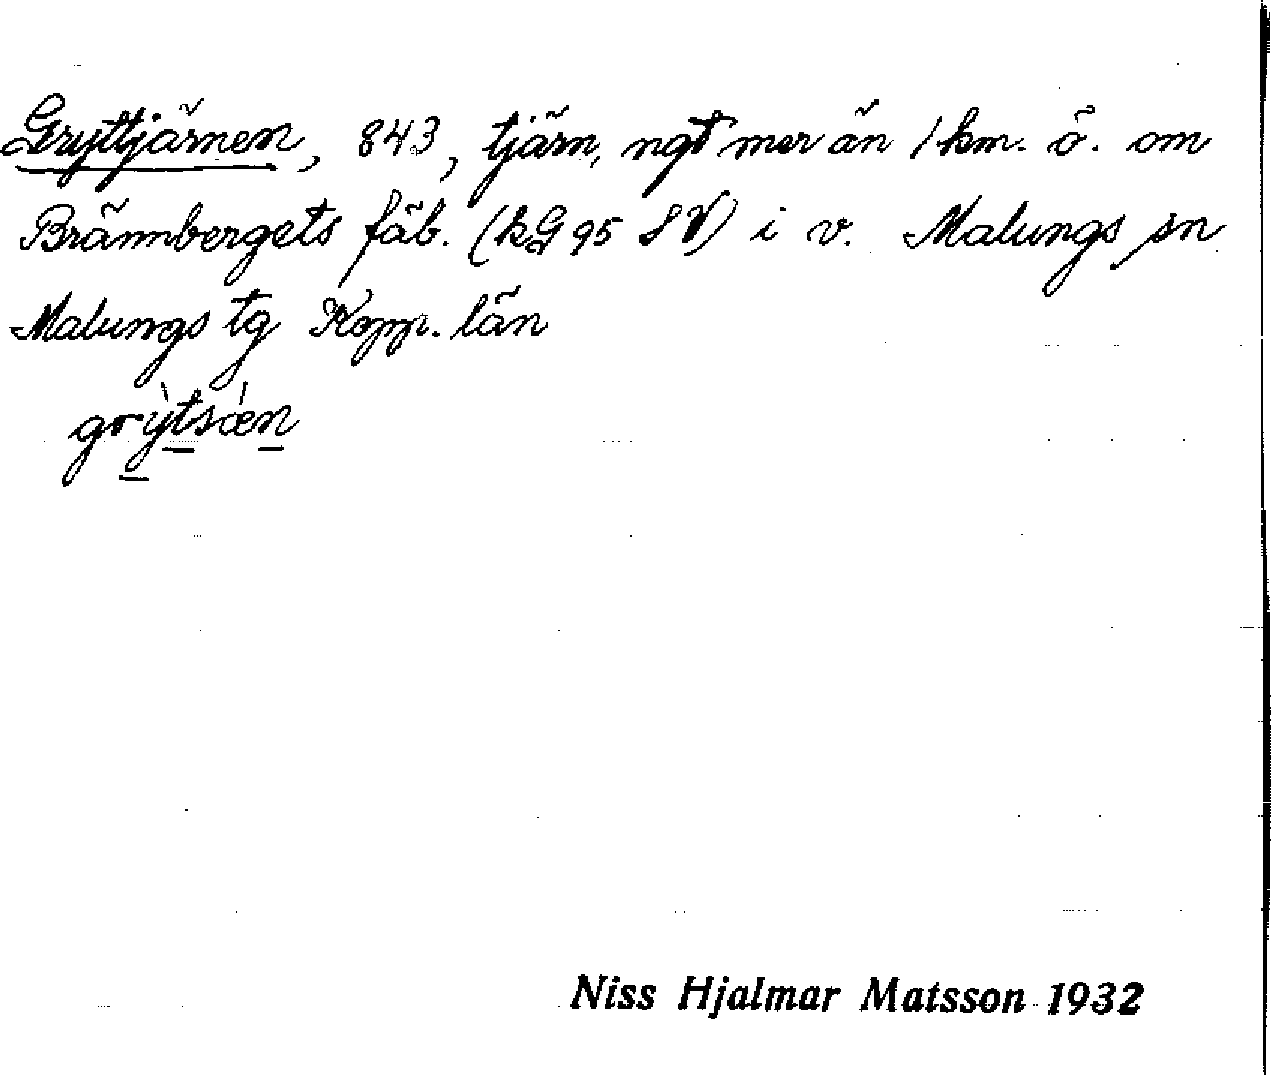 Gryttjärnen, 843, tjärn, ngt mer än 1 km. ö. om
Brännbergets fäb. (kG 95 SV) i v. Malungs sn
Malungs tg Kopp. län
Niss Hjalmar Matsson 1932